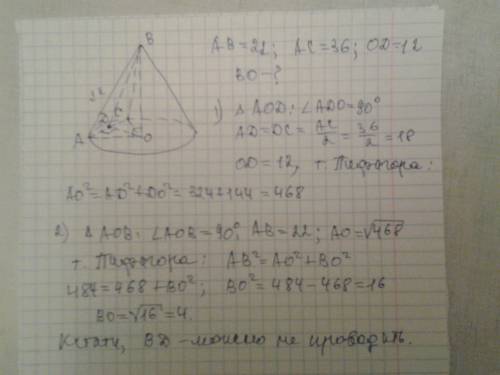 B
22
C
D
A
O
AB=22; AC=36; OD=12
BO-?
1) △AOD: ∠ADO=90°
AD=DC= AC/2 = 36/2 = 18
OD=12, т. Пифагора:
AO²=AD²+DO²=324+144=468
2) △AOB: ∠AOB=90°, AB=22; AO=√468
т. Пифагора: AB²=AO²+BO²
484=468+BO²; BO²=484-468=16
BO=√16=4.
Кстати, BD-можно не проводить.